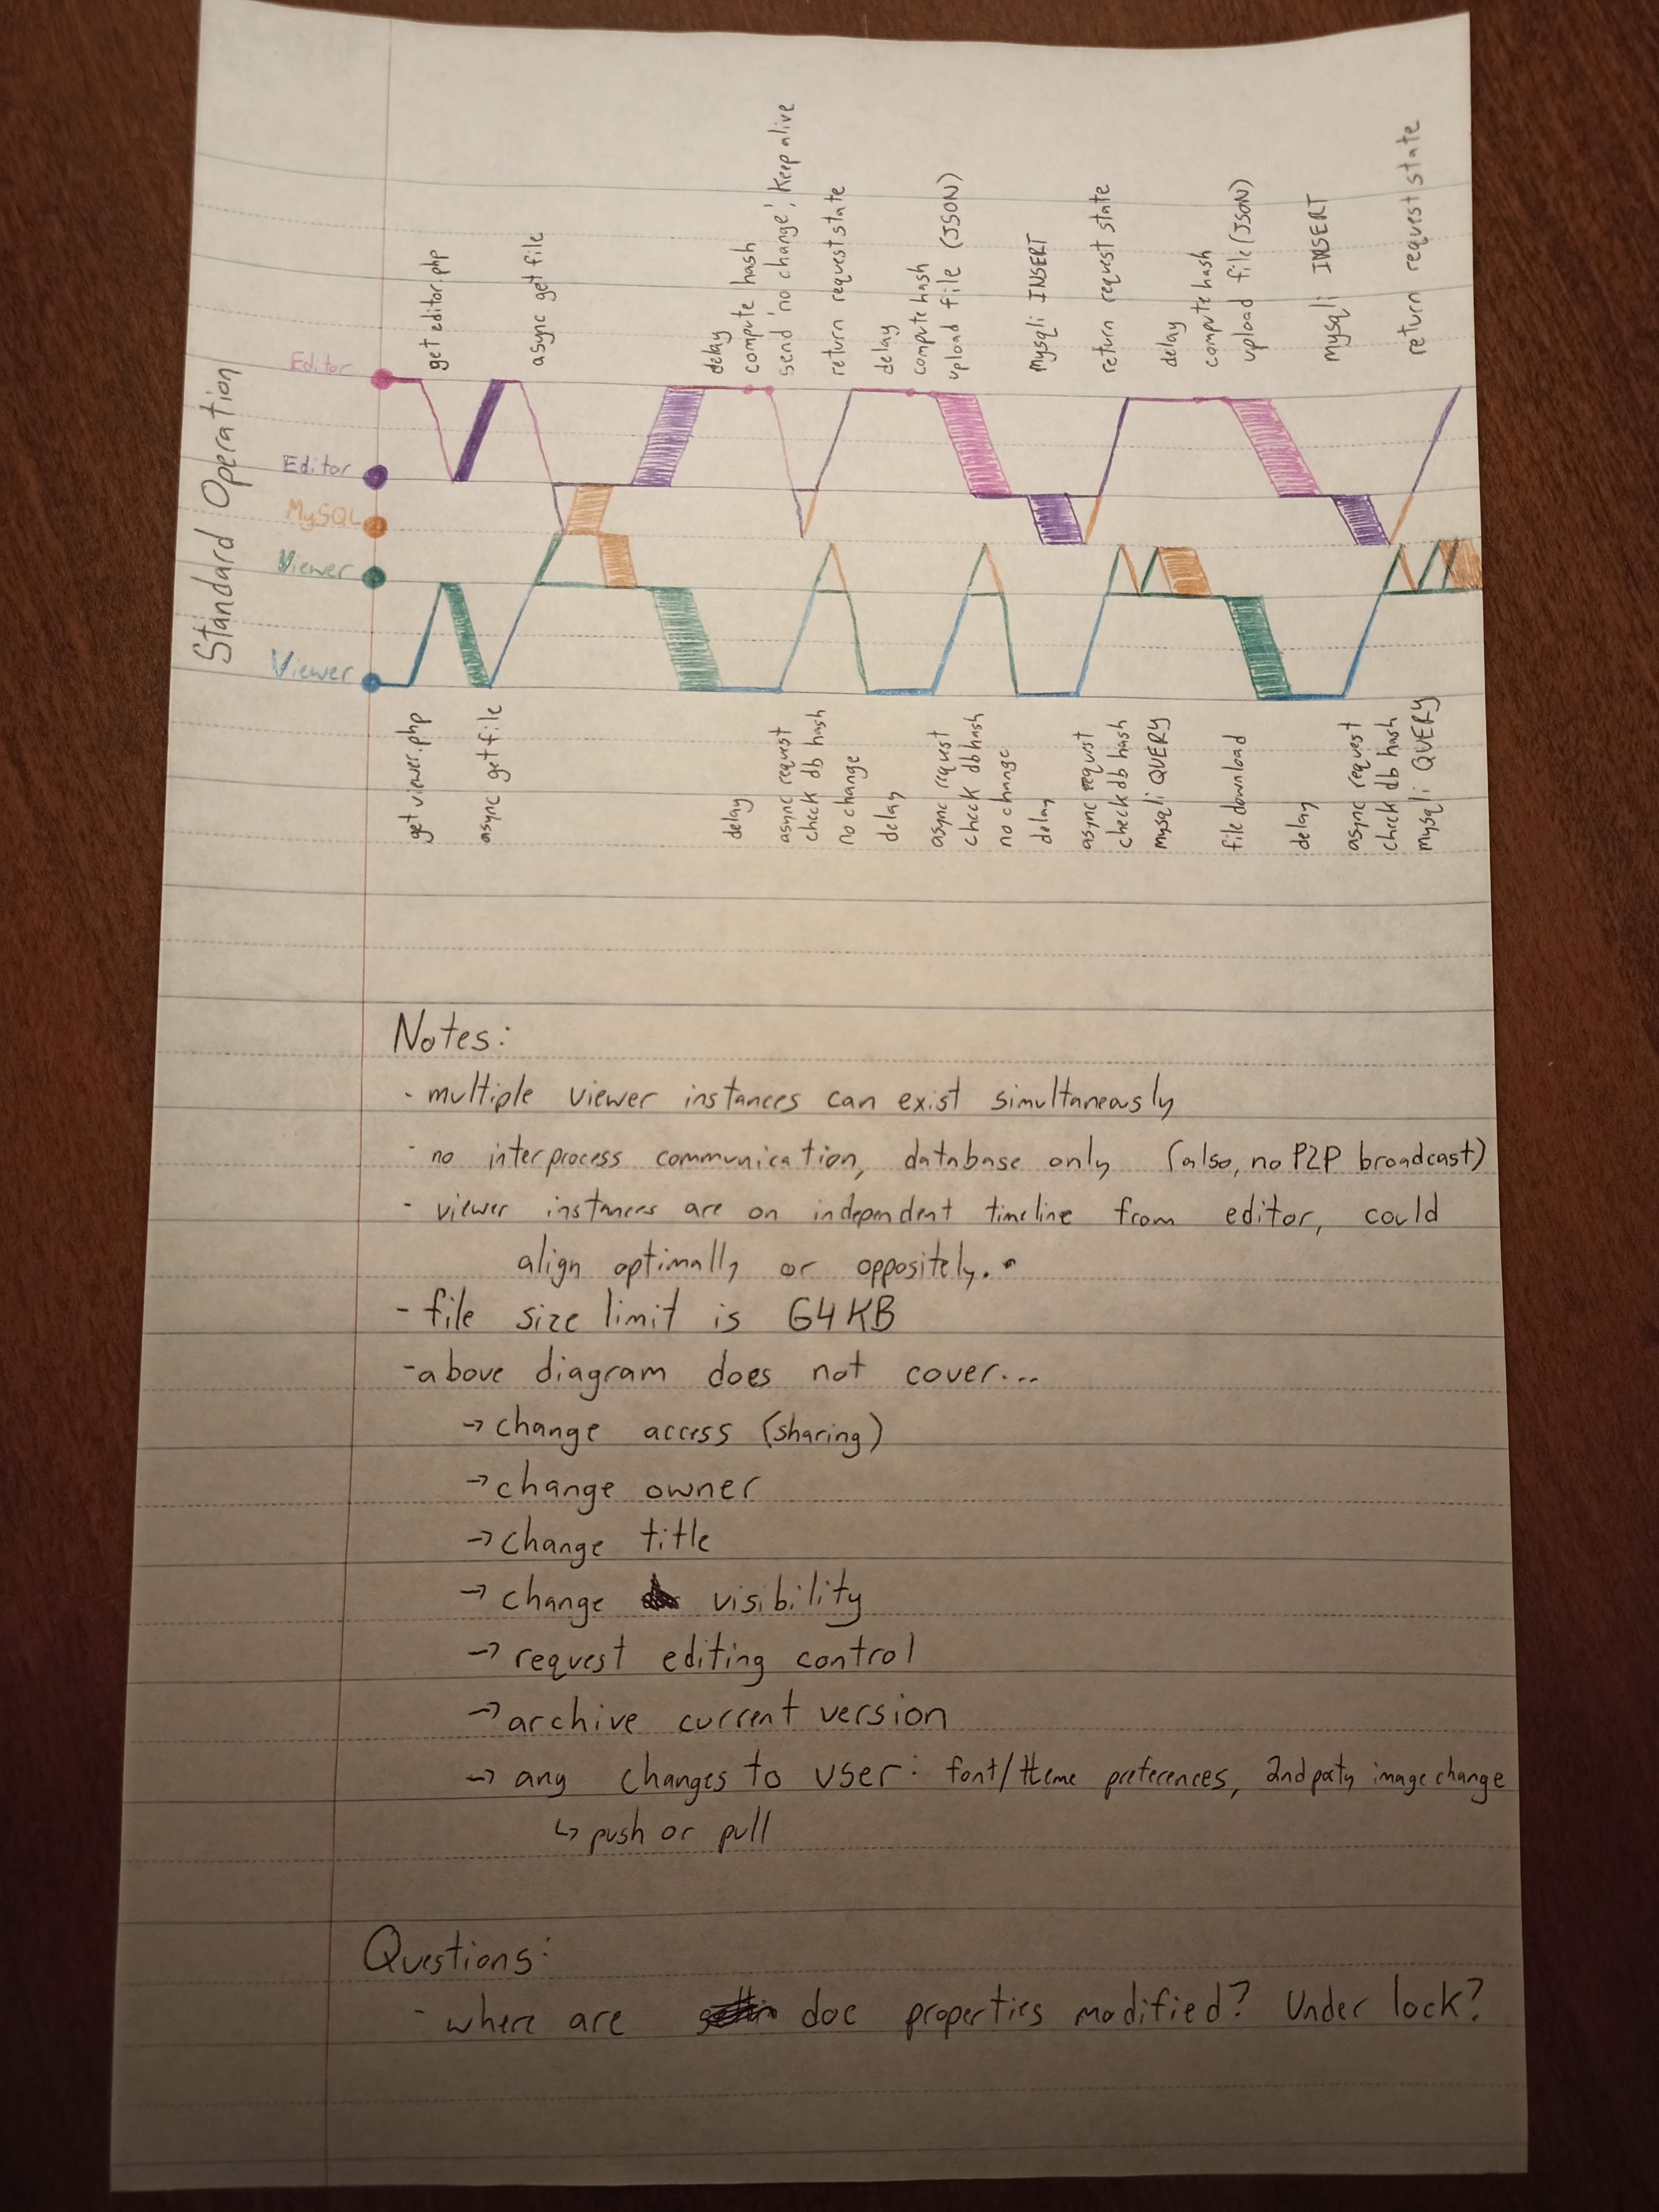 Standard Operation
Editor
Editor
MySQL
Viewer
Viewer
get editor.php
async get file
delay
compute hash
send 'no change', keep alive
return request state
delay
compute hash
upload file (JSON)
mysqli INSERT
return request state
delay
compute hash
upload file (JSON)
mysqli INSERT
return request state
get viewer.php
async get file
delay
async request
check db hash
no change
delay
async request
check db hash
no change
delay
async request
check db hash
mysqli QUERY
file download
delay
async request
check db hash
mysqli QUERY
Notes:
- multiple viewer instances can exist simultaneously
- no interprocess communication, database only (also, no P2P broadcast)
- viewer instances are on independent timeline from editor, could
align optimally or oppositely.
- file size limit is 64KB
- above diagram does not cover...
→ change access (sharing)
→ change owner
→ change title
→ change visibility
→ request editing control
→ archive current version
→ any changes to user: font/theme preferences, 2nd party image change
↳ push or pull
Questions:
- where are doc properties modified? Under lock?